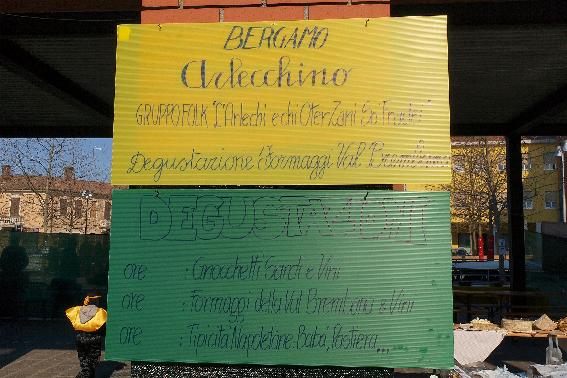 BERGAMO
Arlecchino
GRUPPO FOLK "L'Arlechì e chi Oter Zani So Fradei"
Degustazione Formaggi Val Brembana
DEGUSTAZIONI
ore : Gnocchetti Sardi e Vini
ore : Formaggi della Val Brembana e Vini
ore : Tipicità Napoletane Babà, Pastiera,...